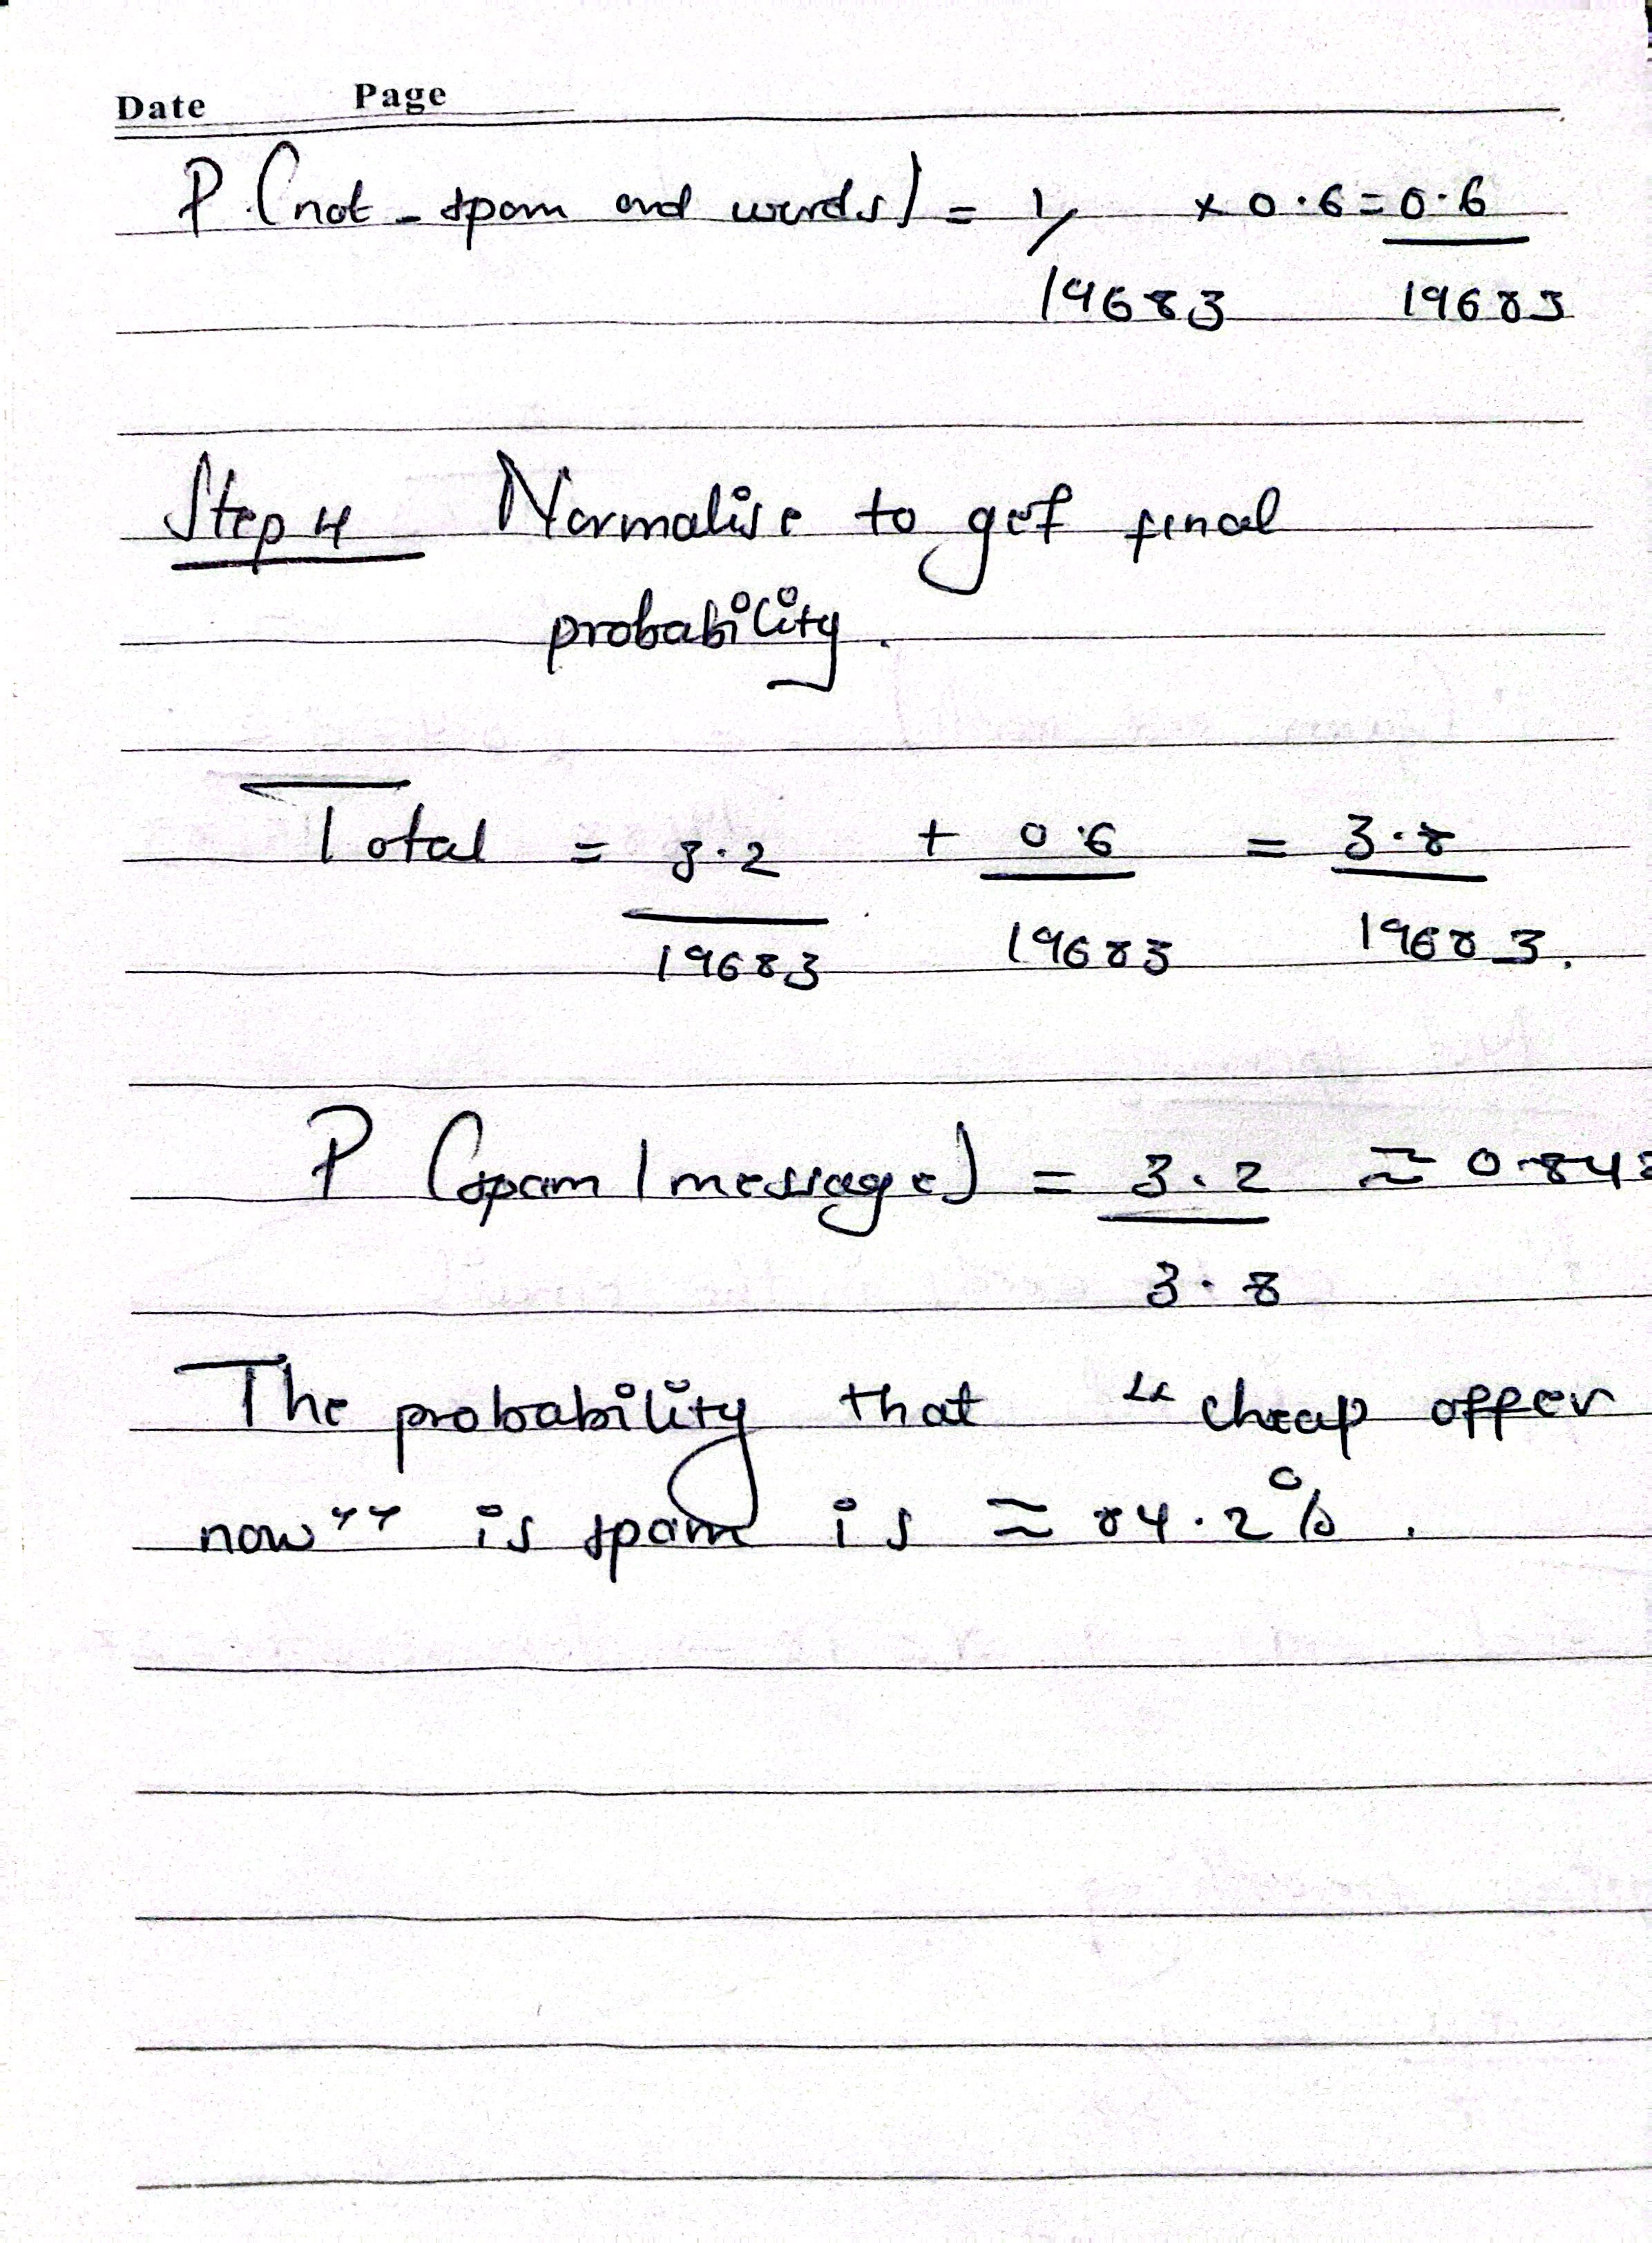 Date Page
P (not-spam and words) = 1/19683 × 0.6 = 0.6/19683
Step 4 Normalise to get final
probability.
Total = 3.2/19683 + 0.6/19683 = 3.8/19683.
P (spam | message) = 3.2/3.8 ≈ 0.842
The probability that "cheap offer
now" is spam is ≈ 84.2%.